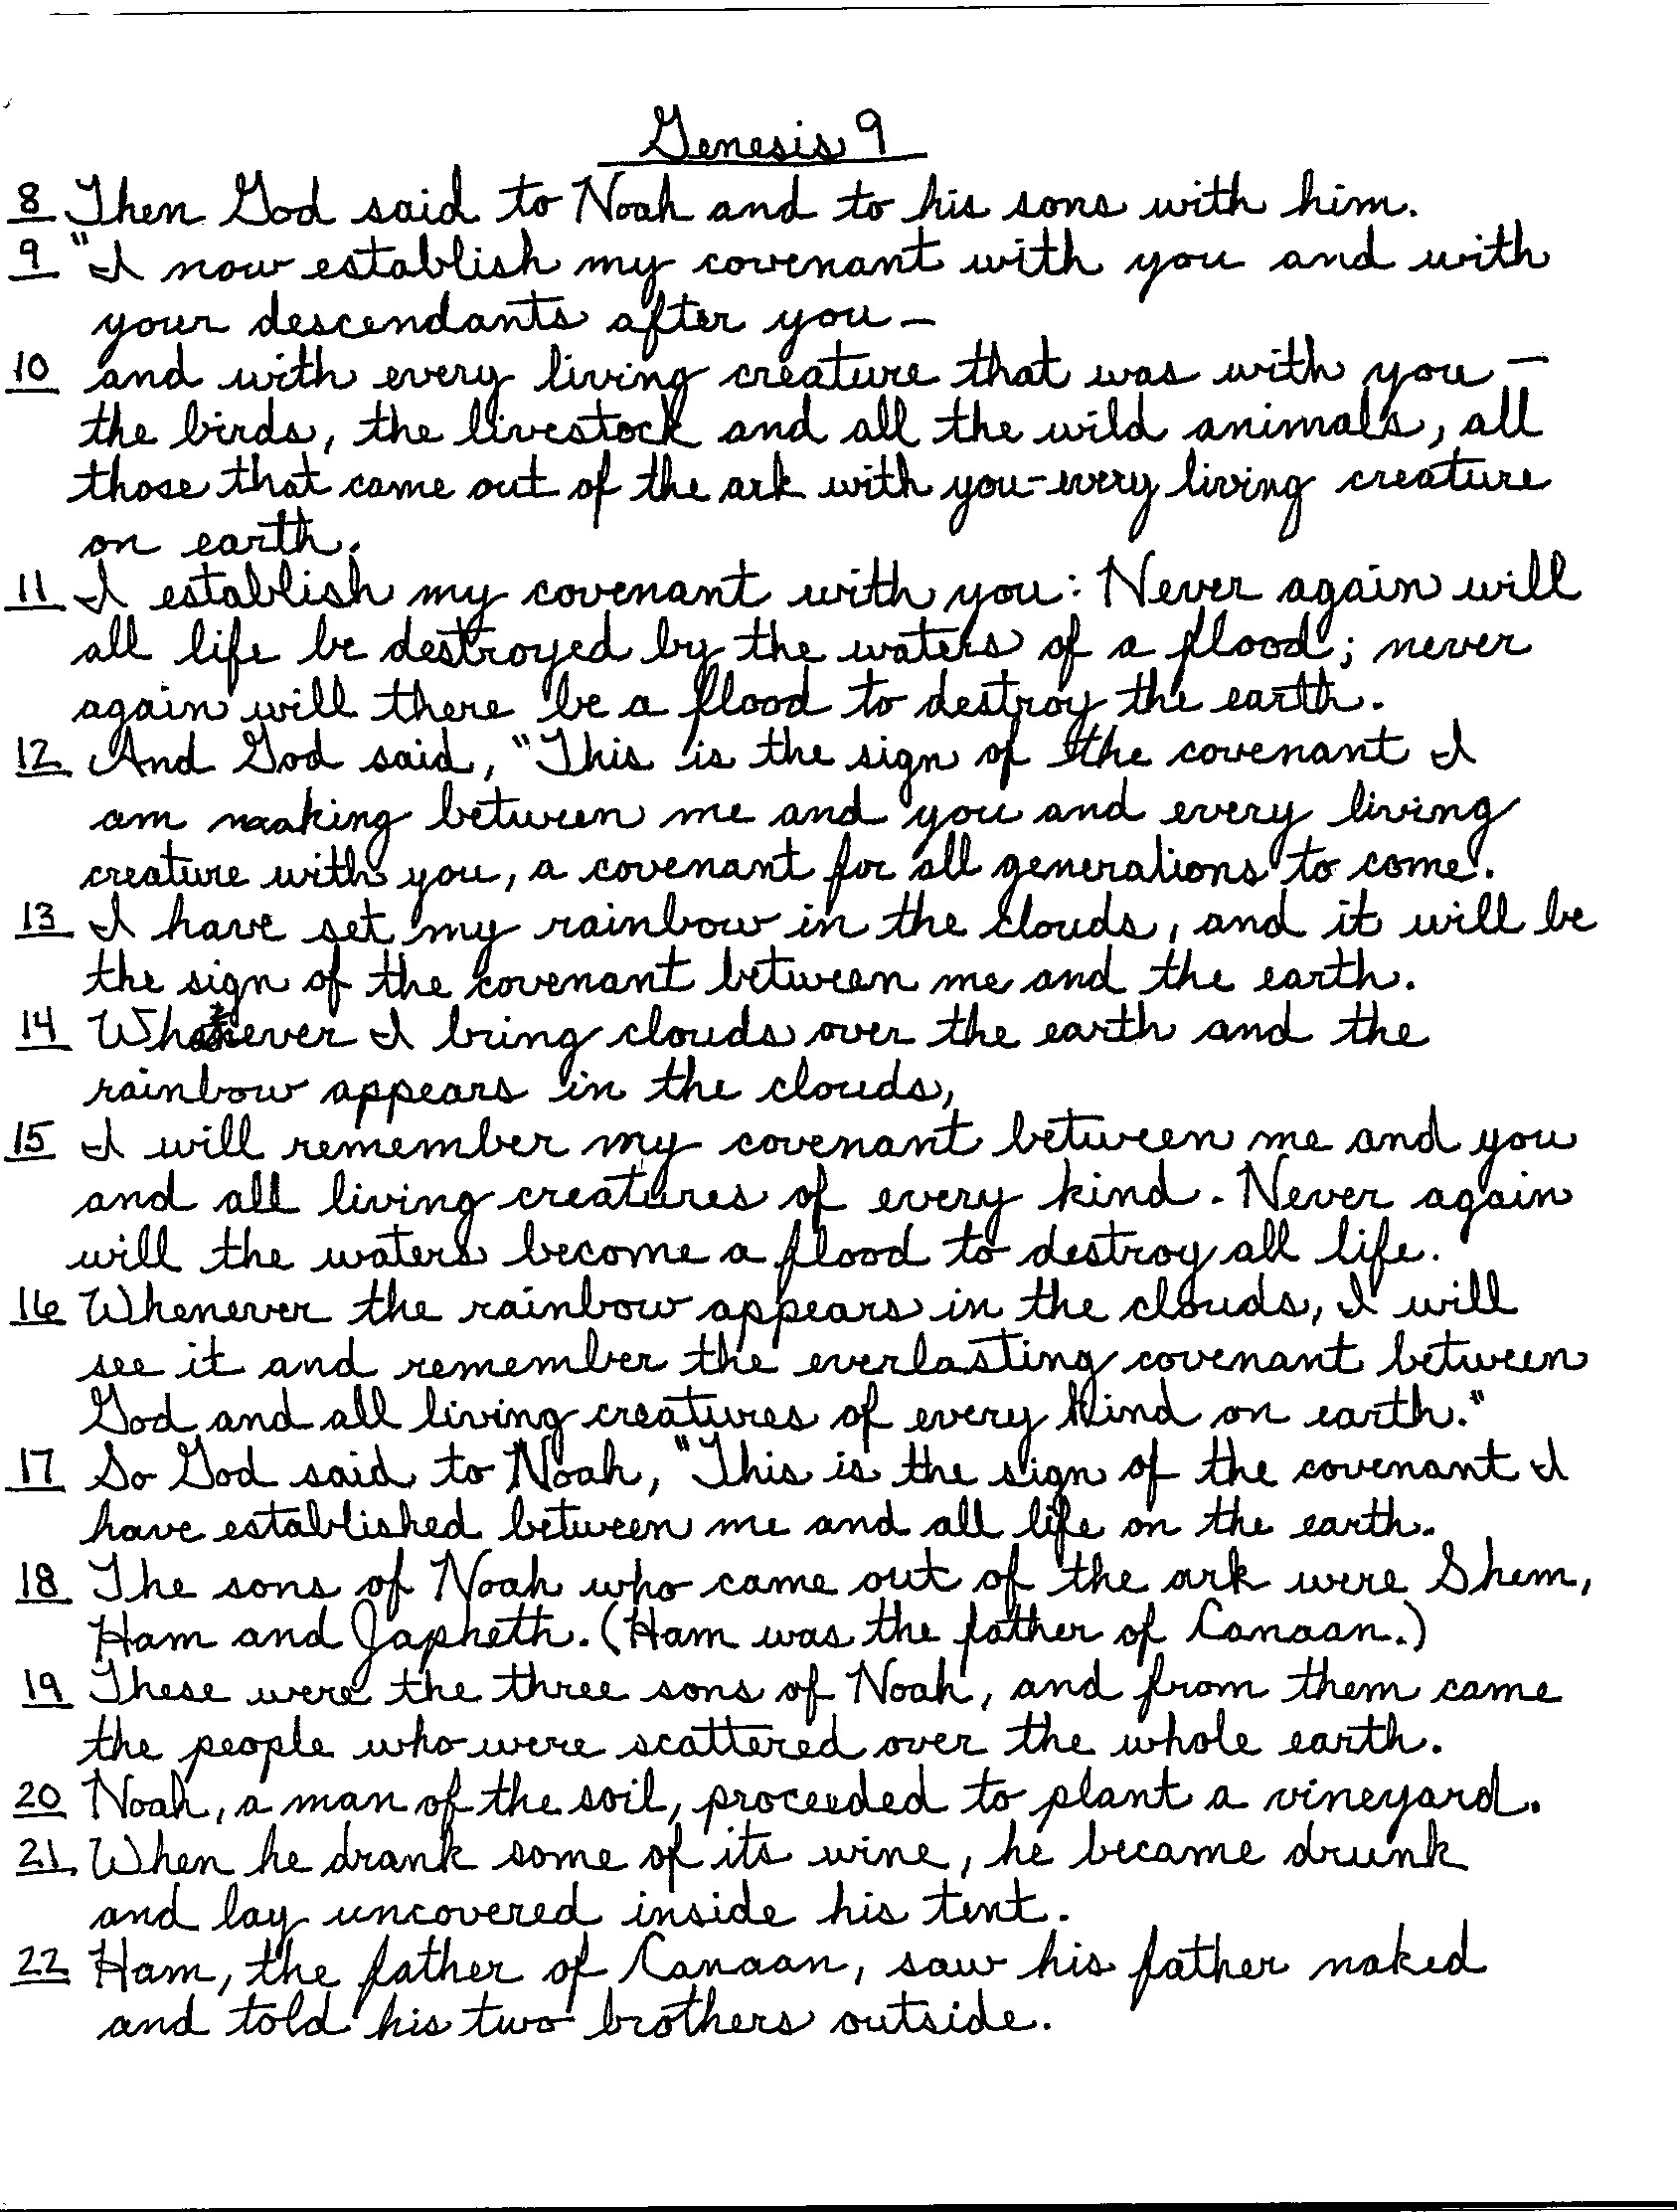 Genesis 9
8 Then God said to Noah and to his sons with him.
9 "I now establish my covenant with you and with
your descendants after you —
10 and with every living creature that was with you —
the birds, the livestock and all the wild animals, all
those that came out of the ark with you - every living creature
on earth.
11 I establish my covenant with you: Never again will
all life be destroyed by the waters of a flood; never
again will there be a flood to destroy the earth.
12 And God said, "This is the sign of the covenant I
am making between me and you and every living
creature with you, a covenant for all generations to come.
13 I have set my rainbow in the clouds, and it will be
the sign of the covenant between me and the earth.
14 I bring clouds over the earth and the
rainbow appears in the clouds,
15 I will remember my covenant between me and you
and all living creatures of every kind. Never again
will the waters become a flood to destroy all life.
16 Whenever the rainbow appears in the clouds, I will
see it and remember the everlasting covenant between
God and all living creatures of every kind on earth."
17 So God said to Noah, "This is the sign of the covenant I
have established between me and all life on the earth.
18 The sons of Noah who came out of the ark were Shem,
Ham and Japheth. (Ham was the father of Canaan.)
19 These were the three sons of Noah, and from them came
the people who were scattered over the whole earth.
20 Noah, a man of the soil, proceeded to plant a vineyard.
21 When he drank some of its wine, he became drunk
and lay uncovered inside his tent.
22 Ham, the father of Canaan, saw his father naked
and told his two brothers outside.